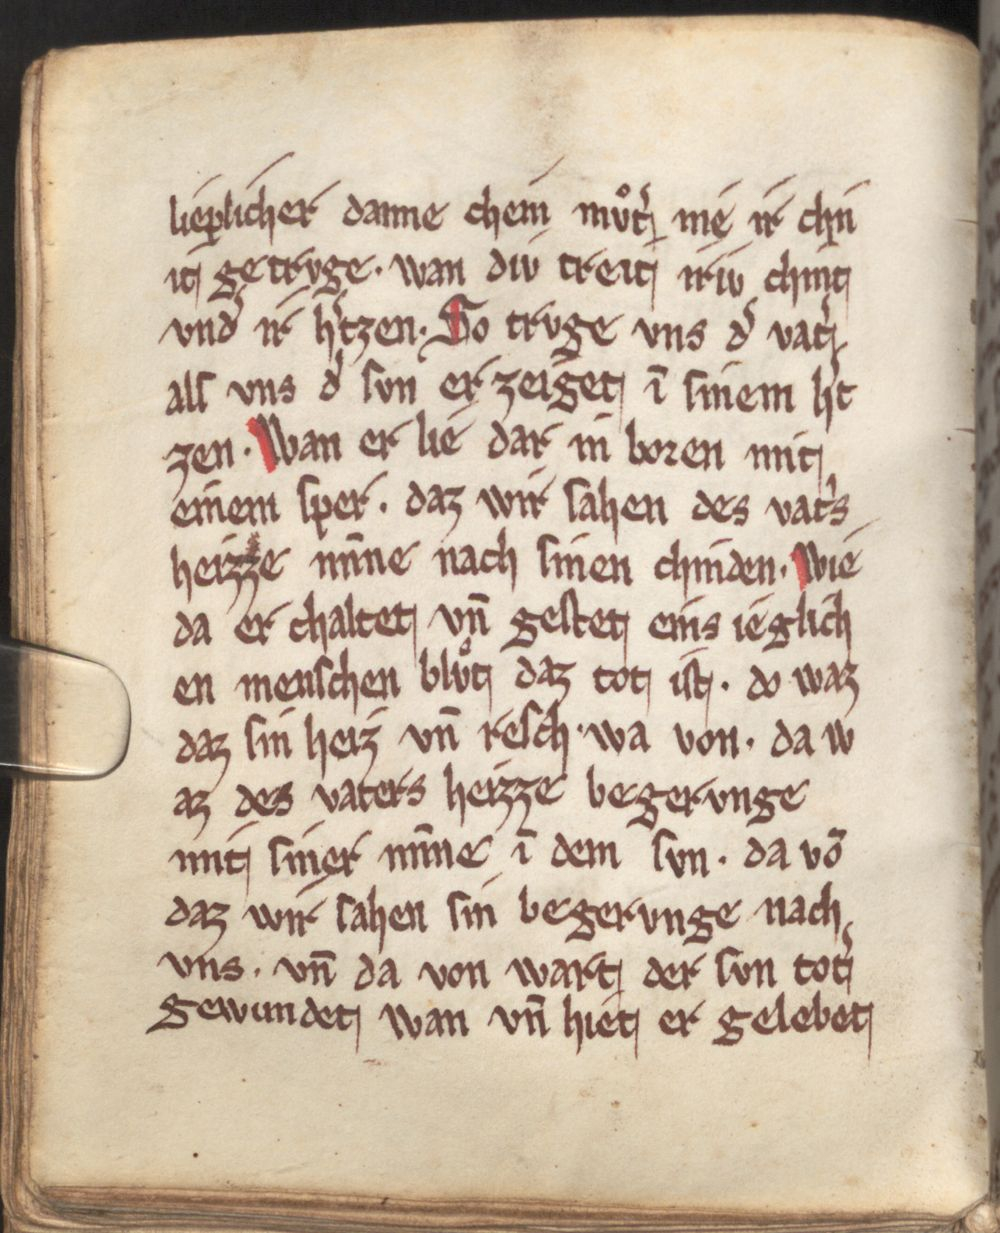 lieplicher danne chein mvͦtˀ nie ir chn
it getrvge · wan div treit iriv chint
vndˀ ir hˀtzen · So trvge vns dˀ vatˀ
als vns dˀ svn erzeiget ī sinem hˀt
zen · Wan er lie dar in boren mit
einem sper · daz wir sahen des vatˀs
heizze mīne nach sinen chinden · Wie
da er chaltet vn̄ gestet eins ieglich
en menschen blvͦt daz tot ist · do waz
daz sin heiz vn̄ resch · wa von · da w
az des vaters heizze begervnge
mit siner mīne ī dem svn · da vō
daz wir sahen sin begervnge nach
vns · vn̄ da von wart der svn totˀ
gewundet wan vn̄ hiet er gelebet